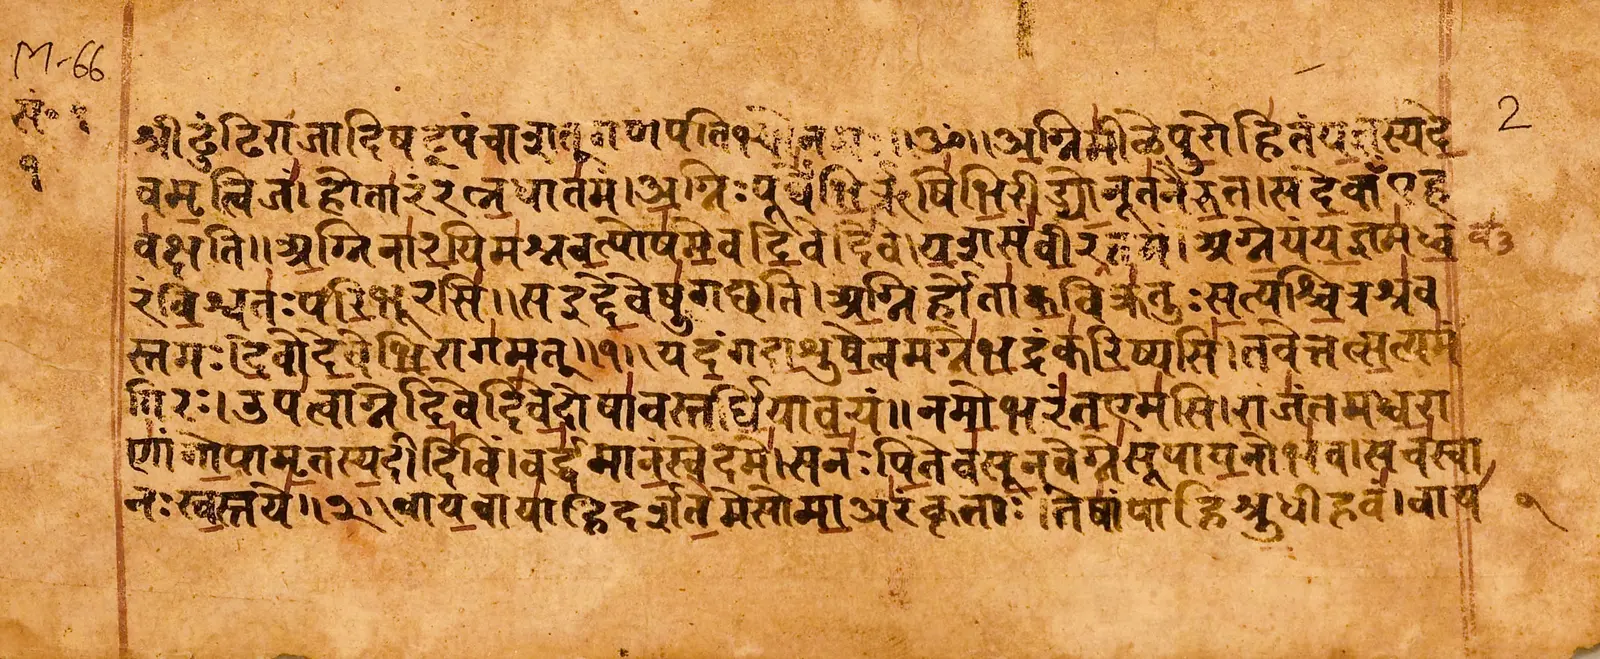 M-66
सं० १
१
2
श्रीढुंढिराजादिषट्पंचाशतूगणपतिभ्योनमः॥ॐ॥अग्निमीळेपुरोहितंयज्ञस्यदे
वमृत्विजं।होतारंरत्नधातमं।अग्निःपूर्वेभिर्ऋषिभिरीड्योनूतनैरुत।सदेवाँएह
वक्षति॥अग्निनारयिमश्नवत्पोषमेवदिवेदिवे।यशसंवीरवत्तमं।अग्नेयंयज्ञमध्व
रंविश्वतःपरिभूरसि॥सइद्देवेषुगछति।अग्निर्होताकविक्रतुःसत्यश्चित्रश्रव
स्तमः।देवोदेवेभिरागमत्॥१॥यदंगदाशुषेत्वमग्नेभद्रंकरिष्यसि।तवेत्तत्सत्यमं
गिरः।उपत्वाग्नेदिवेदिवेदोषावस्तर्धियावयं॥नमोभरंतएमसि।राजंतमध्वरा
णांगोपामृतस्यदीदिविं।वर्द्धमानंस्वेदमे।सनःपितेवसूनवेग्नेसूपायनोभव।सचस्वा
नःस्वस्तये॥२॥वायवायाहिदर्शतेमेसोमाअरंकृताः।तेषांपाहिश्रुधीहवं।वाय